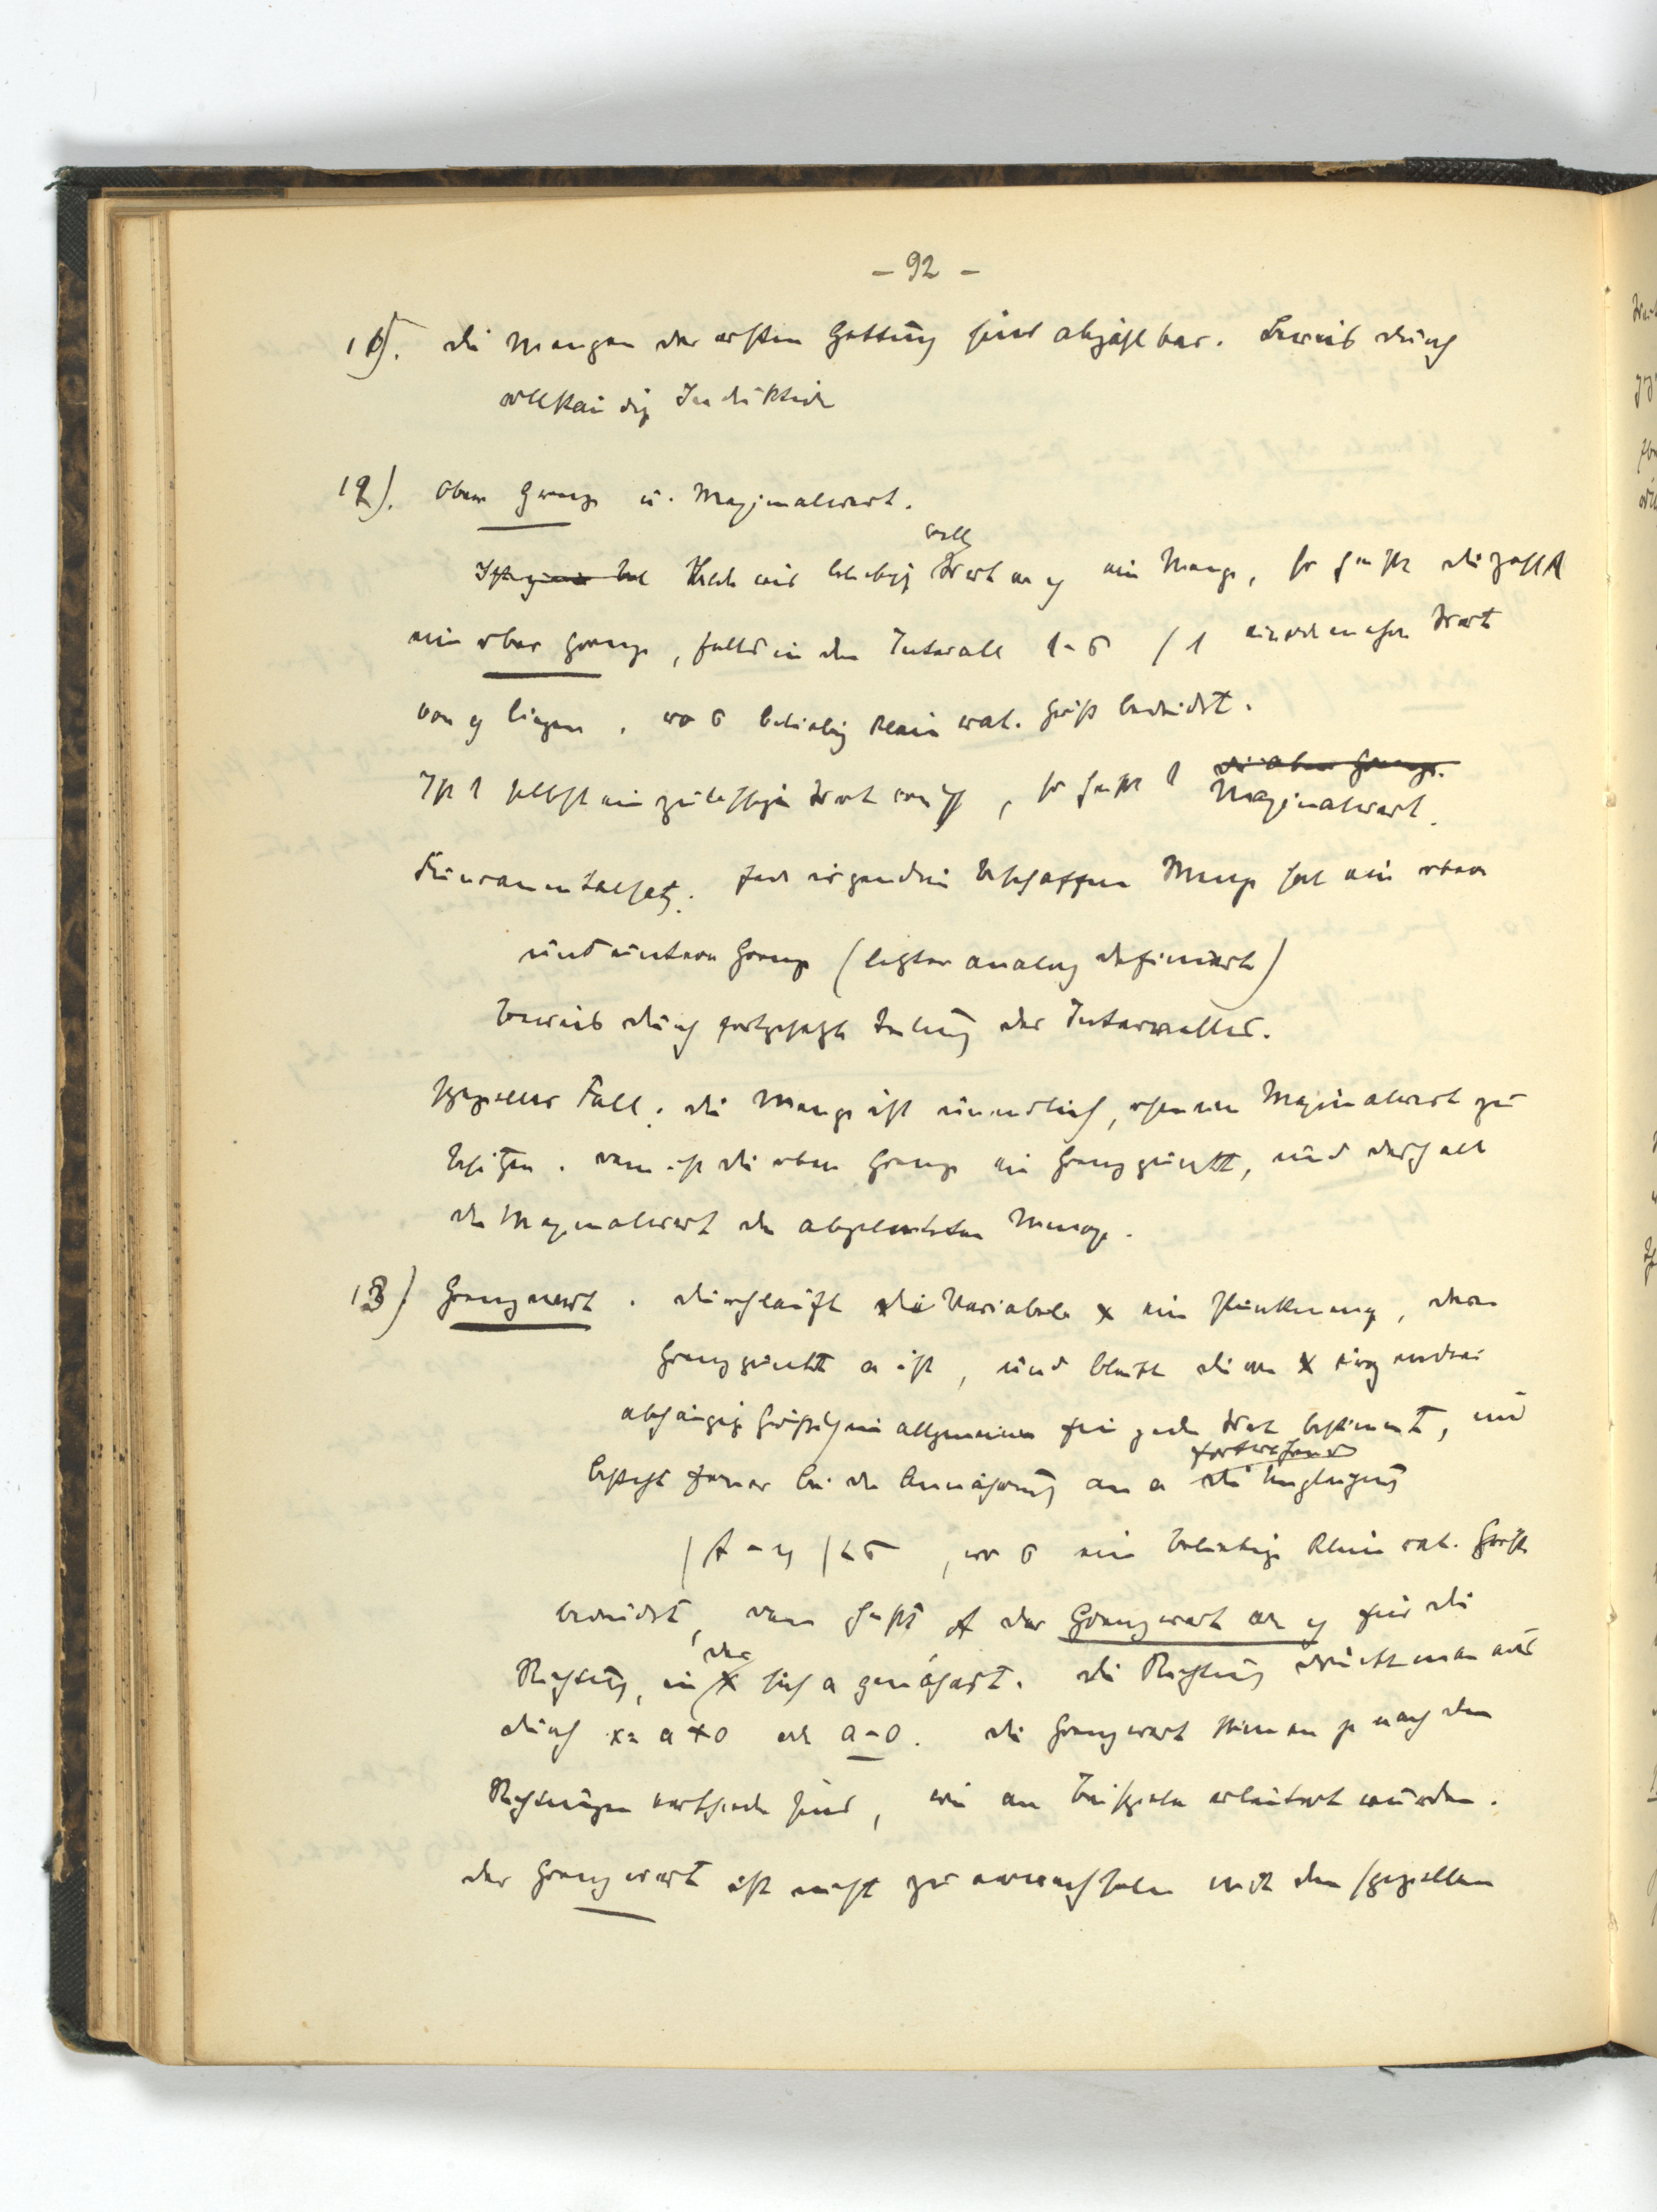 - 92 -
11). Die Mengen der ersten Gattung sind abzählbar. Beweis durch
vollständige Induktion
12). Obere Grenze u. Maximalwert.
beliebig Werte y eine Menge, so heißt die Zahl l
eine obere Grenze, falls in dem Intervall l-δ / l Werte
von y liegen, wo δ beliebig kleine rat. Größe bedeutet.
Ist l selbst ein zulässiger Wert von y, so heißt l die obere Grenze. Maximalwert.
Fundamentalsatz: Jede irgendwie beschaffene Menge hat eine obere
und untere Grenze (letztere analog definiert)
Beweis durch fortgesetzte Teilung des Intervalles.
Spezieller Fall: die Menge ist unendlich, ohne einen Maximalwert zu
besitzen. Dann ist die obere Grenze ein Grenzpunkt, und deshalb
der Maximalwert der abgeleiteten Menge.
13). Grenzwert. Durchläuft die Variabele x eine Punktmenge, deren
Grenzpunkt a ist, und bleibt die von x irgendwie
abhängige Größe y im allgemeinen für jeden Wert bestimmt, und
besteht ferner bei der Annäherung an a die fortwährend Ungleichung
|A - y| < δ, wo δ eine beliebige kleine rat. Größe
bedeutet, dann heißt A der Grenzwert von y für die
Richtung, in der x sich a genähert. Die Richtung drückt man aus
durch x = a + 0 oder a - 0. Die Grenzwerte können je nach den
Richtungen verschieden sind, wie an Beispielen erläutert wurden.
Der Grenzwert ist nicht zu verwechseln mit dem speziellen